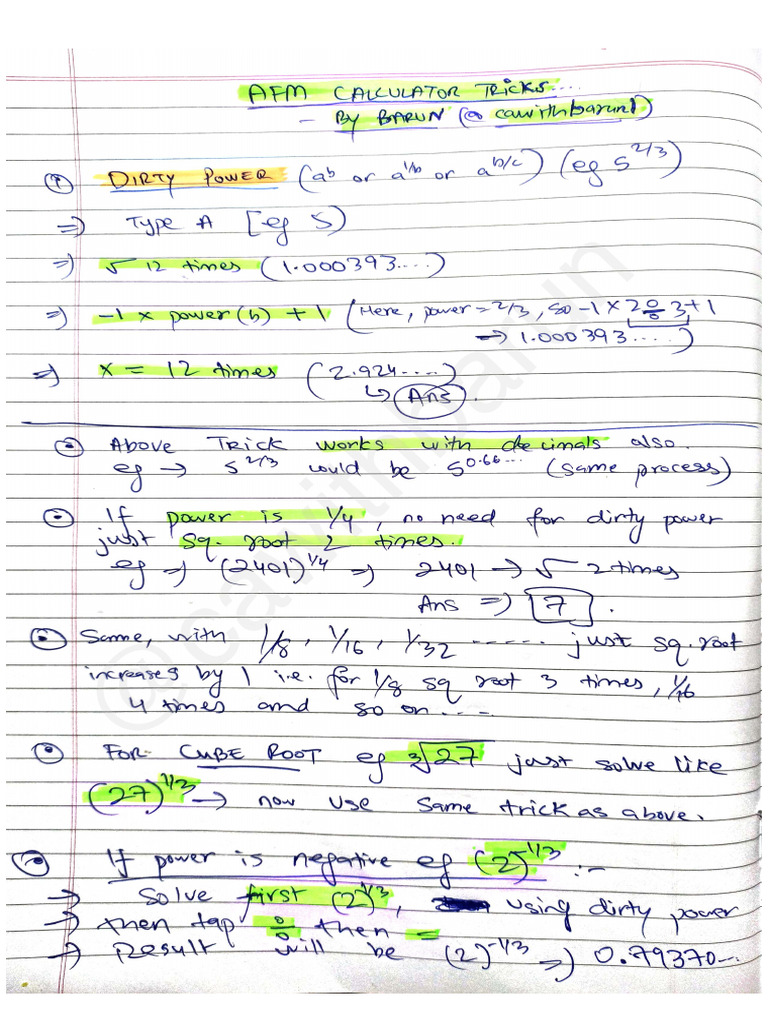 AFM CALCULATOR TRICKS....
- By BARUN (@ cawithbarun)
① DIRTY POWER (a^b or a^1/b or a^b/c) (eg 5^2/3)
⇒ Type A [eg 5)
⇒ √ 12 times (1.000393....)
⇒ -1 × power(b) + 1 (Here, power = 2/3, so -1 × 2 ÷ 3 + 1
→ 1.000393.....)
⇒ × = 12 times (2.924....)
↳ Ans.
Above Trick works with decimals also.
eg → 5^2/3 would be 5^0.66... (same process)
If power is 1/4, no need for dirty power
just sq. root 2 times.
eg ⇒ (2401)^1/4 ⇒ 2401 → √ 2 times
Ans ⇒ 7.
Same, with 1/8, 1/16, 1/32 ...... just sq. root
increases by 1 i.e. for 1/8 sq root 3 times, 1/16
4 times and so on....
FOR- CUBE ROOT eg ³√27 just solve like
(27)^1/3 → now use same trick as above.
If power is negative eg (2)^-1/3 :-
→ Solve first (2)^1/3, using dirty power
→ then tap ÷ then =
→ Result will be (2)^-1/3 ⇒ 0.79370...
@cawithbarun